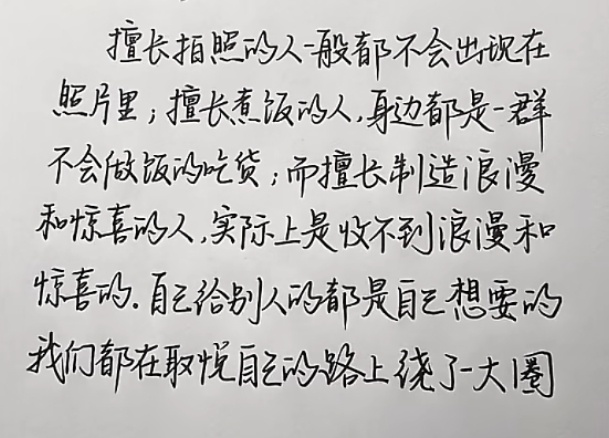 擅长拍照的人一般都不会出现在
照片里；擅长煮饭的人，身边都是一群
不会做饭的吃货；而擅长制造浪漫
和惊喜的人，实际上是收不到浪漫和
惊喜的．自己给别人的都是自己想要的
我们都在取悦自己的路上绕了一大圈